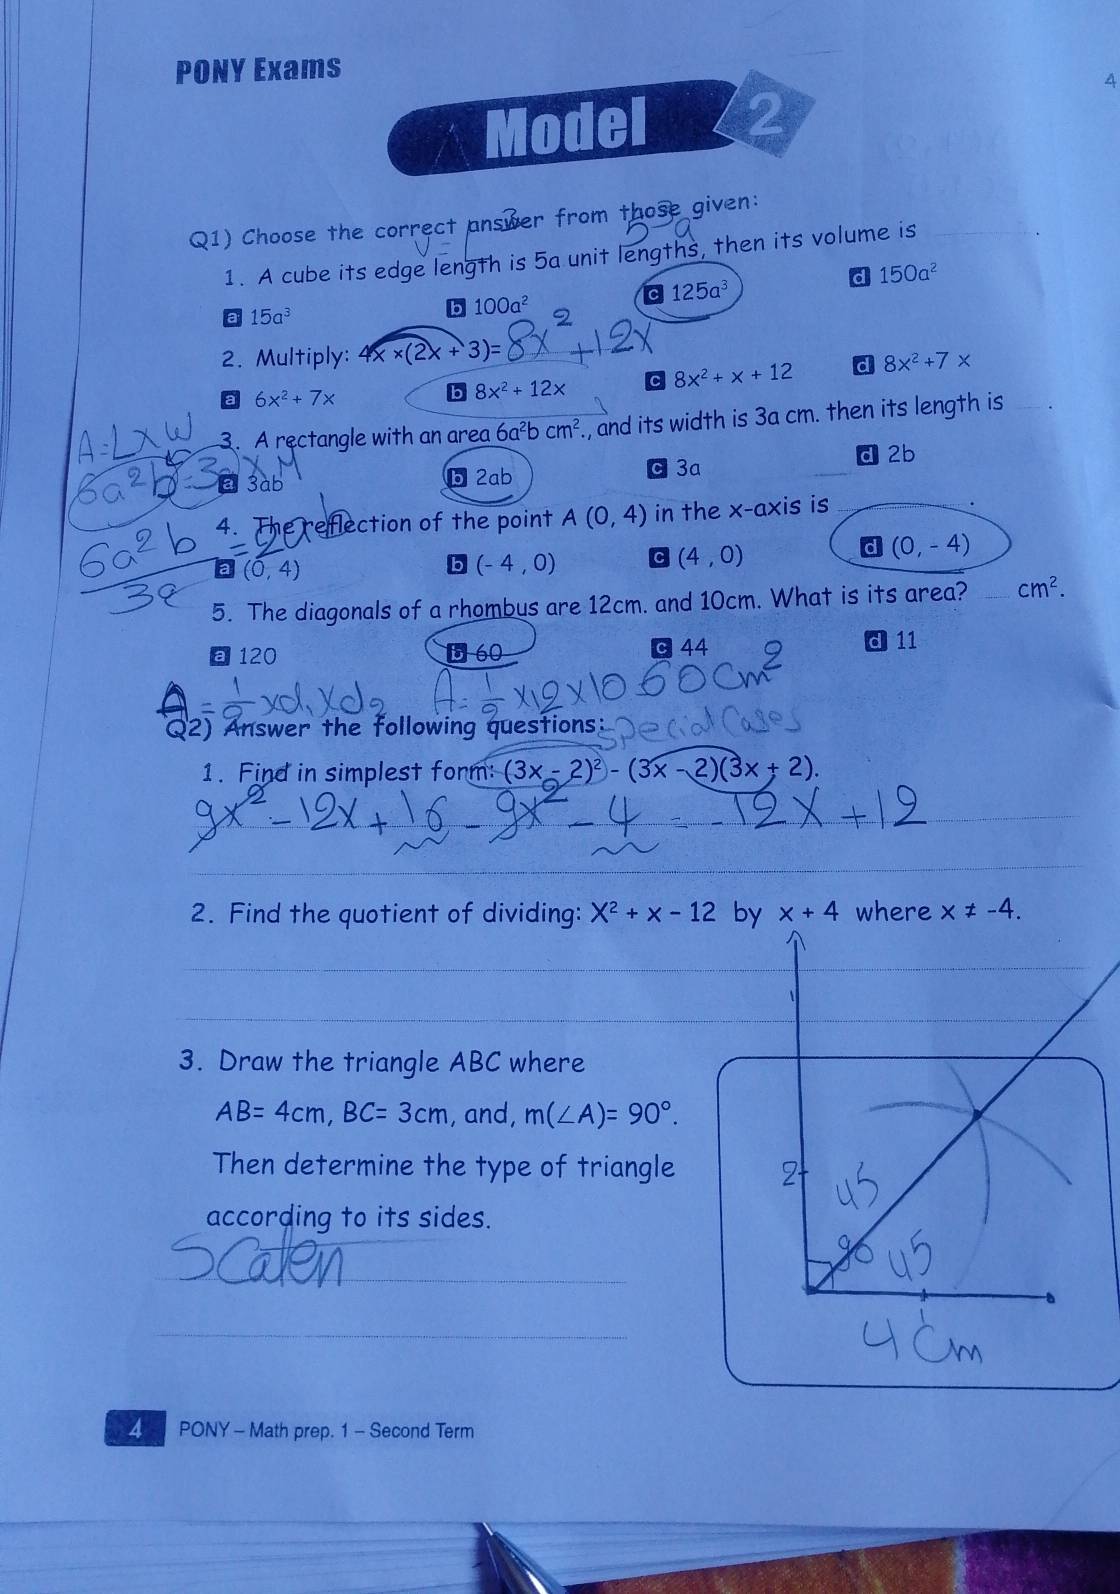 PONY Exams
4
Model 2
Q1) Choose the correct answer from those given:
1. A cube its edge length is 5a unit lengths, then its volume is
a 15a³ b 100a² c 125a³ d 150a²
2. Multiply: 4x ×(2x + 3)= 8x² + 12x
a 6x² + 7x b 8x² + 12x c 8x² + x + 12 d 8x² +7 x
A=L×W
3. A rectangle with an area 6a²b cm²., and its width is 3a cm. then its length is .
6a²b=3a×
a 3ab b 2ab c 3a d 2b
4. The reflection of the point A (0, 4) in the x-axis is .
6a²b
3a
=2ab
a (0, 4) b (- 4 , 0) c (4 , 0) d (0, - 4)
5. The diagonals of a rhombus are 12cm. and 10cm. What is its area? cm².
a 120 b 60 c 44 d 11
A=½×d₁×d₂ A=½×12×10 60cm²
Q2) Answer the following questions: special cases
1. Find in simplest form: (3x - 2)² - (3x - 2)(3x + 2).
9x² - 12x + 16 - 9x² - 4 = -12x + 12
2. Find the quotient of dividing: X² + x - 12 by x + 4 where x ≠ -4.
3. Draw the triangle ABC where
AB= 4cm, BC= 3cm, and, m(∠A)= 90°.
Then determine the type of triangle
according to its sides.
Scalen
2
45
90
45
4cm
4 PONY – Math prep. 1 – Second Term